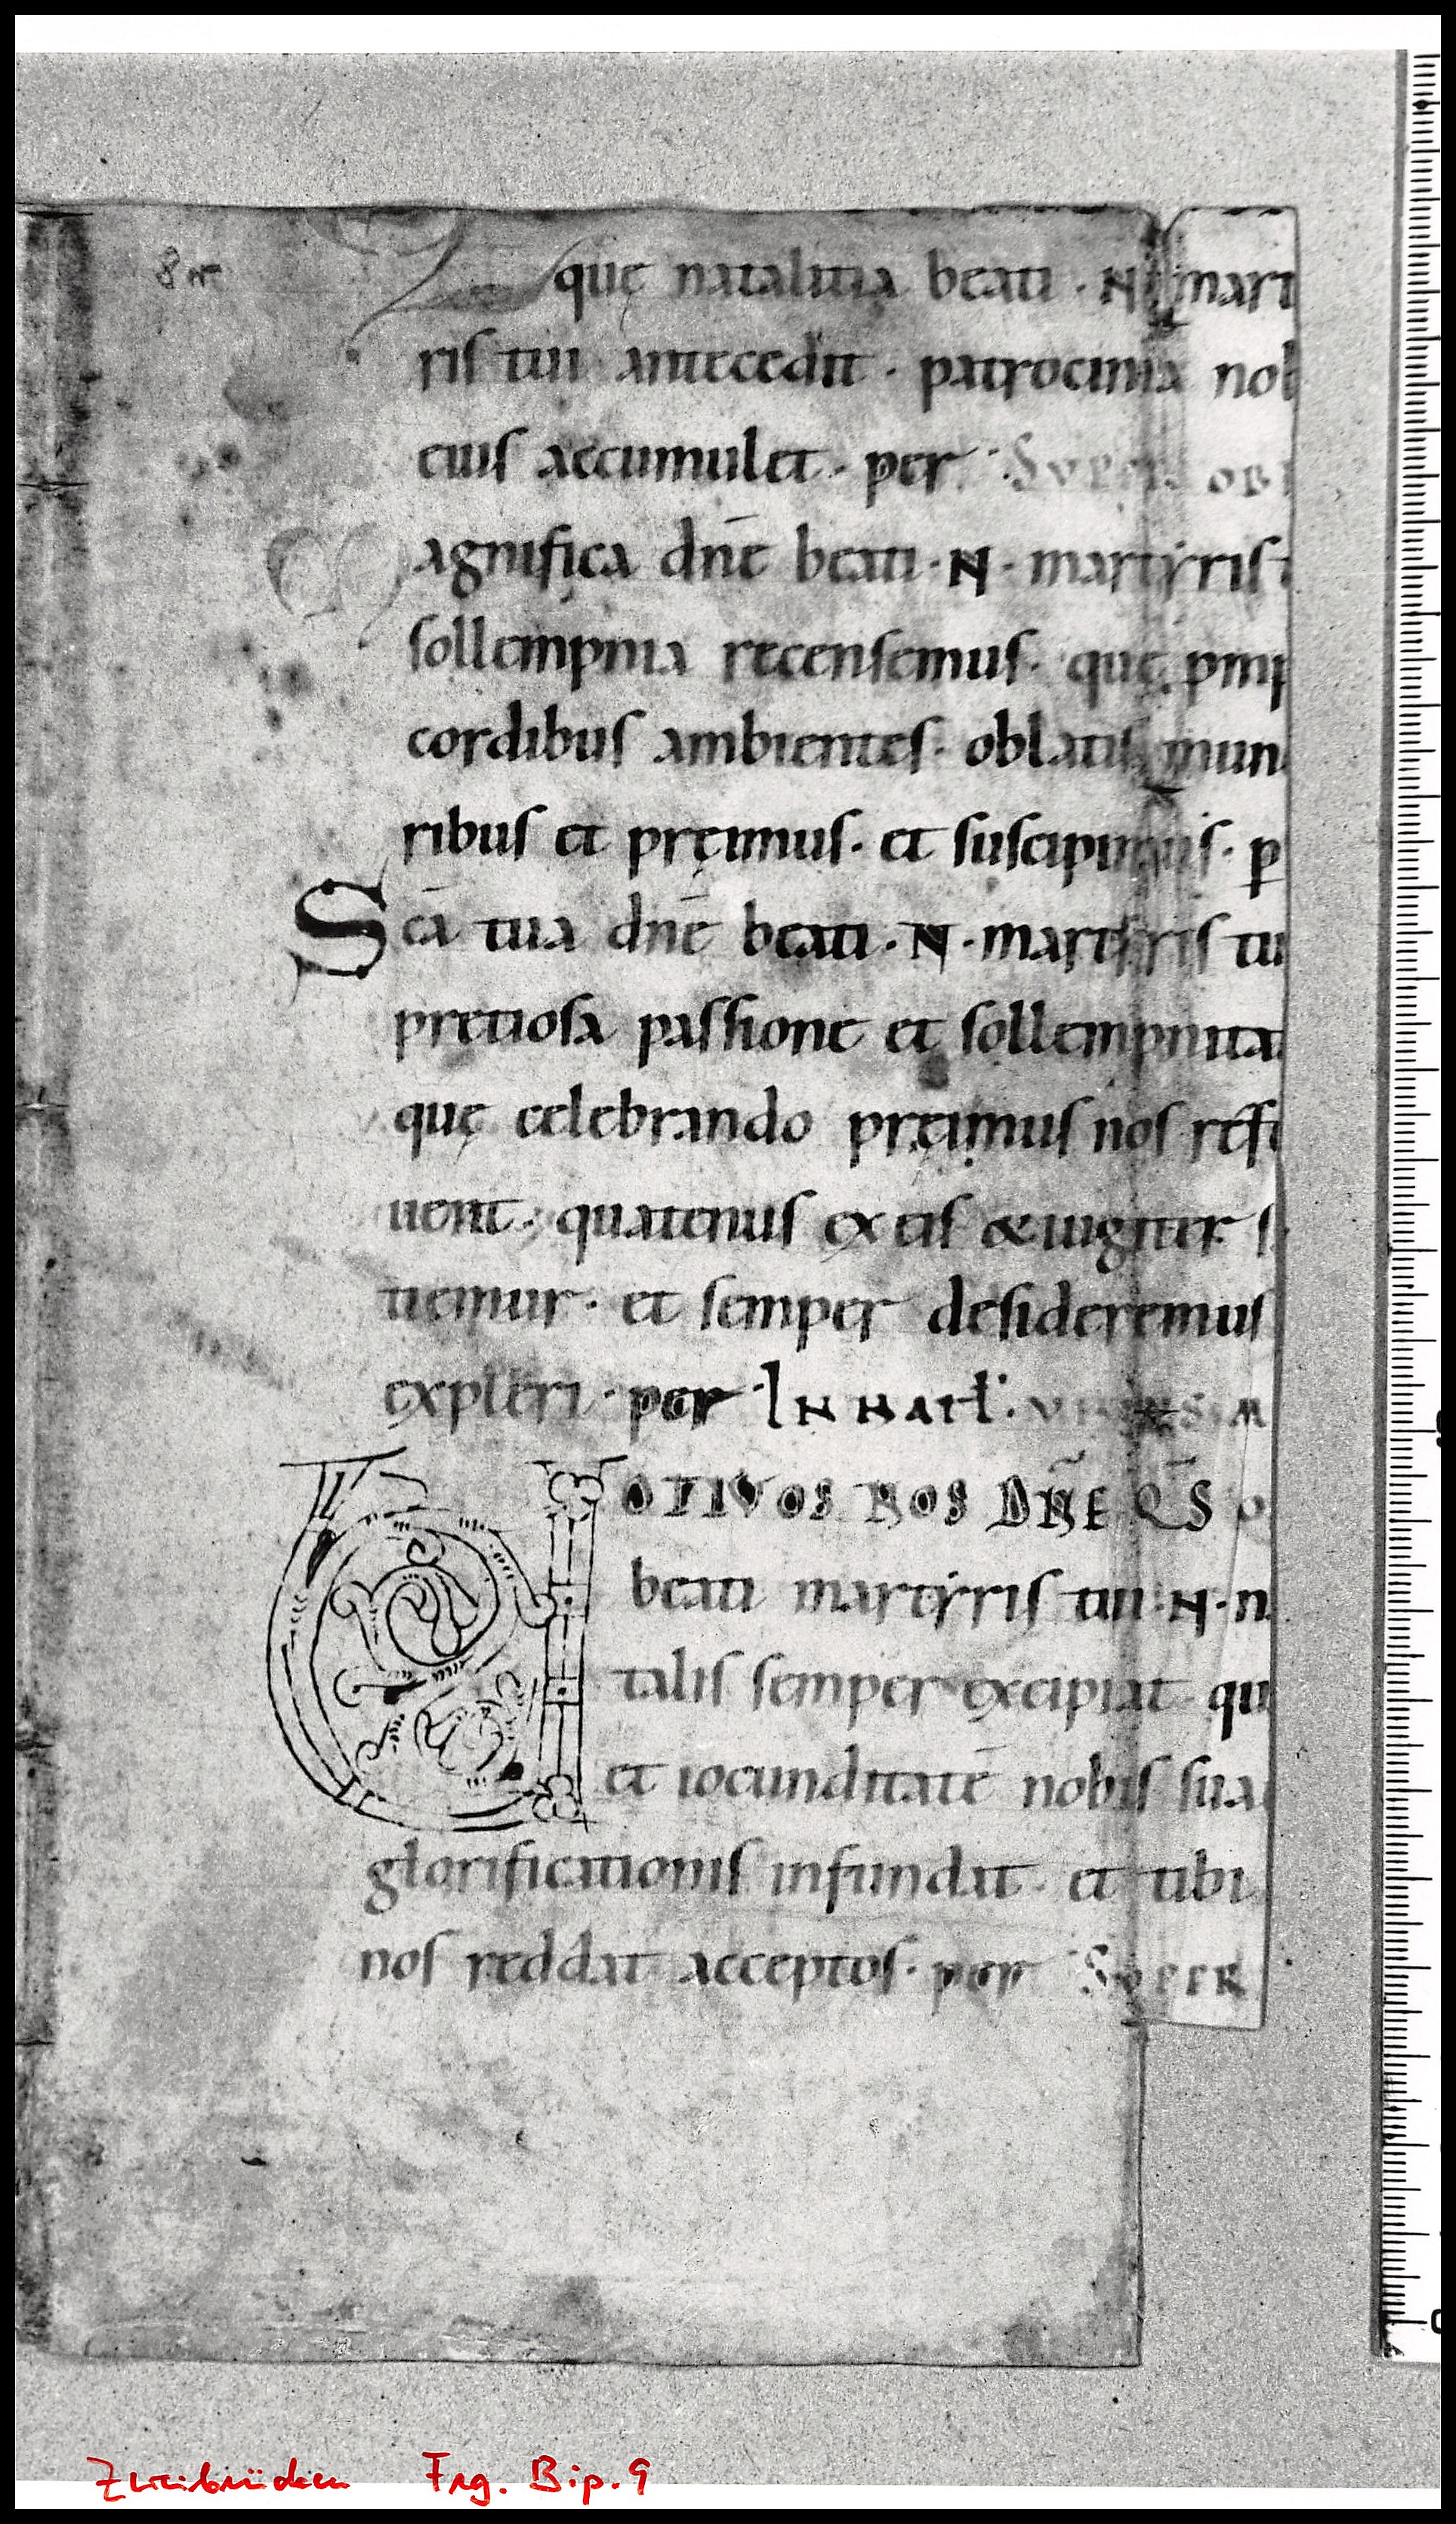 8r
quę natalitia beati · N · mart
ris tui antecedit · patrocinia nob
eius accumulet · per · SUPER OB
Magnifica dn̄e beati · N · martyris
sollempnia recensemus · quę pmp
cordibus ambientes · oblatis mun
ribus et pręimus · et suscipimus · p
Sc̄a tua dn̄e beati · N · martyris tu
pretiosa passione et sollempnita
quę celebrando pręimus nos refo
uent · quatenus ex eis & iugiter s
tiemur · et semper desideremus
expleri · per · IN NATL̄ · UNIUS M
VOTIVOS NOS DN̄E QS̄
beati martyris tui · N · n
talis semper excipiat · qu
et iocunditatē nobis sua
glorificationis infundat · et tibi
nos reddat acceptos · per · SUPER
Zweibrücken Frg. Bip. 9